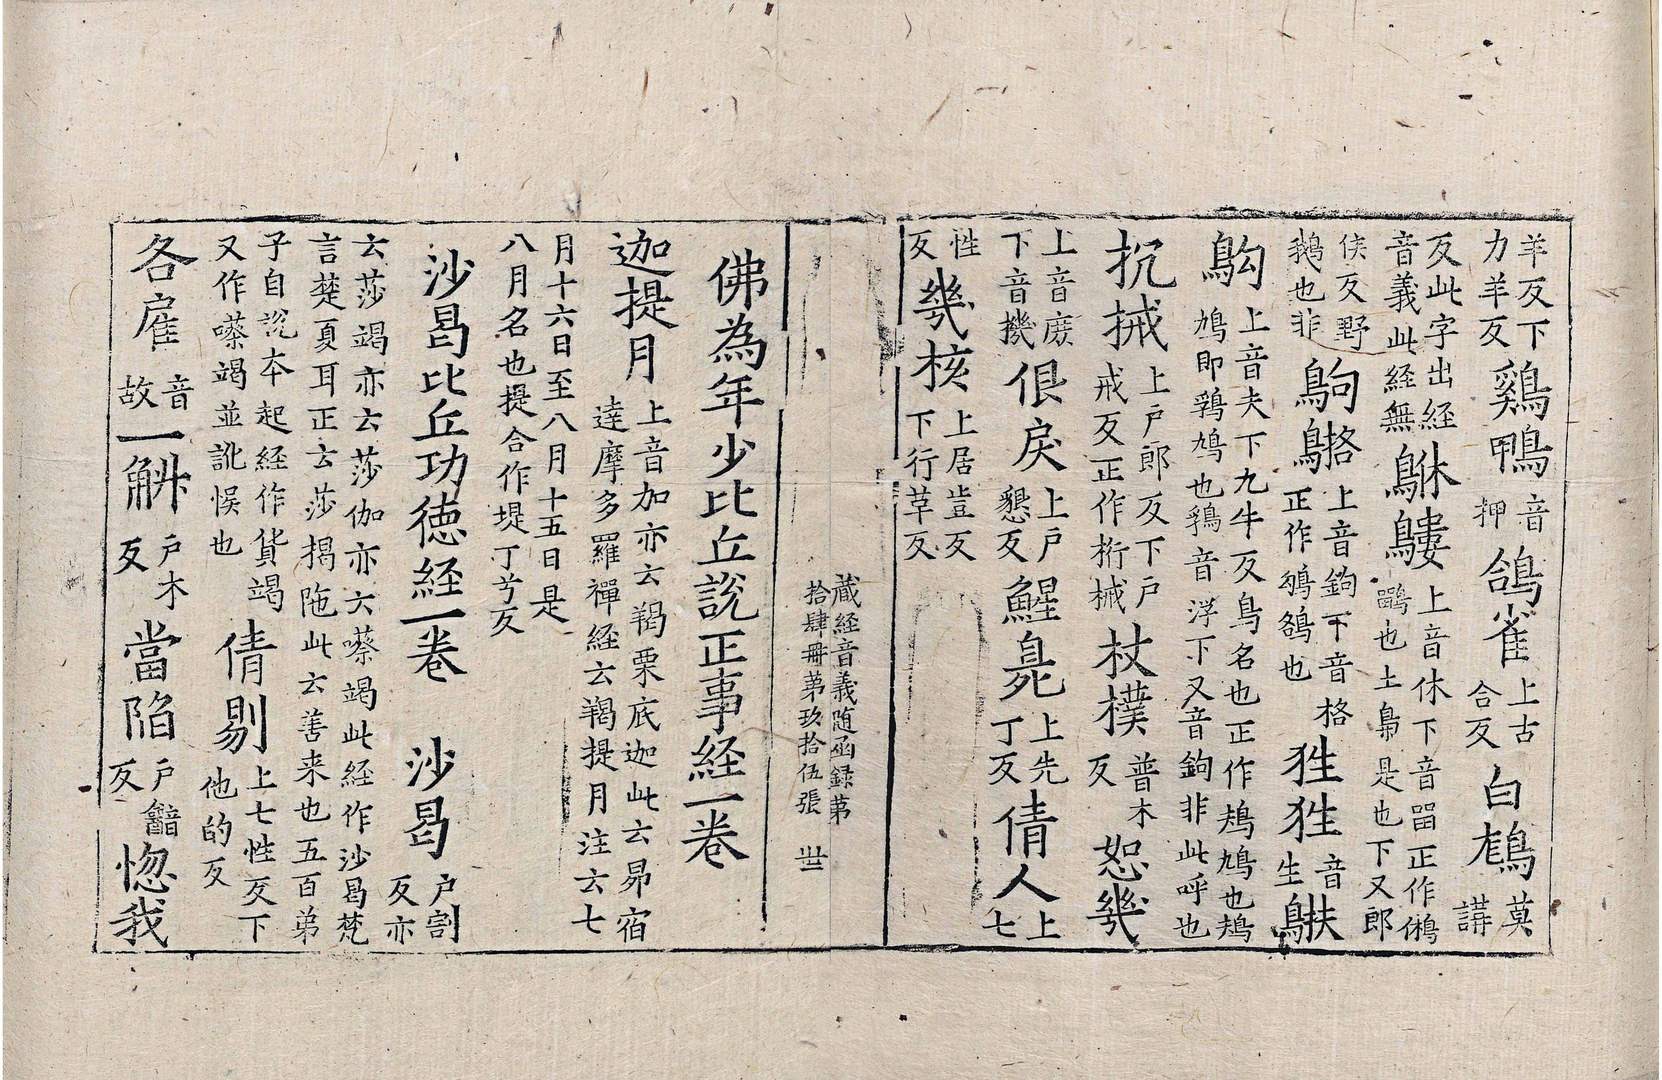 羊反下力羊反鷄鴨音押鴿雀上古合反白鶓莫講
反此字出経音義此経無鵂鶹上音休下音畱正作鵂鶹也土梟是也下又郎
侯反野鵝也非鴝鵅上音鉤下音格正作鴝鵒也狌狌音生鴃
鴝上音夫下九牛反鳥名也正作鳺鳩也鳺鳩即鶉鳩也鶉音浮下又音鉤非此呼也
抗械上戶郎反下戶戒反正作桁械杖樸普木反恕㡬
上音㢝下音機佷戾上戶懇反鯹臰上先丁反倩人上七
性反㡬核上居豈反下行革反
藏経音義随函録第拾肆冊第玖拾伍張 丗
佛為年少比丘說正事経一卷
迦提月上音加亦云羯栗底迦此云昴宿達摩多羅禪経云羯提月注云七
月十六日至八月十五日是八月名也提合作堤丁兮反
沙曷比丘功德経一卷 沙曷戶割反亦
云莎竭亦云莎伽亦云嗏竭此経作沙曷梵言楚夏耳正云莎揭陁此云善来也五百弟
子自說本起経作貨竭又作嗏竭並訛悮也倩剔上七性反下他的反
各雇音故一斛戶木反當陷戶䤃反惚我